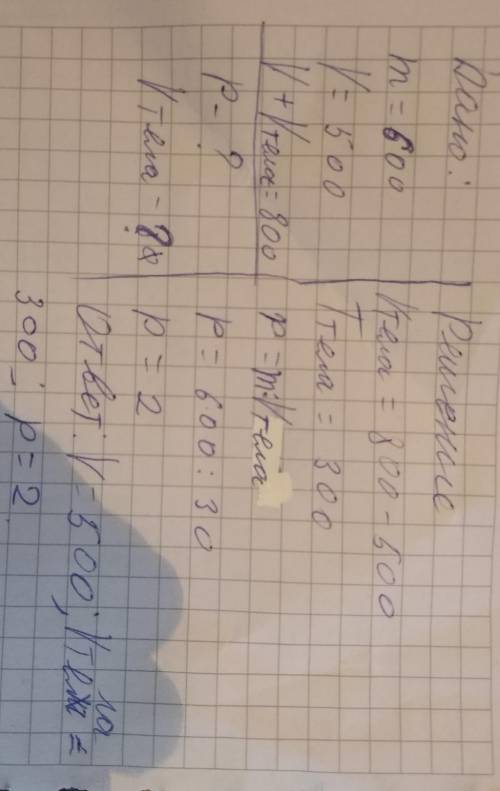 Дано:
m = 600
V = 500
V + Vтела = 800
p - ?
Vтела - ?
Решение
Vтела = 800 - 500
Vтела = 300
p = m:Vтела
p = 600 : 30
p = 2
Ответ: V = 500; Vтела =
300; p = 2.